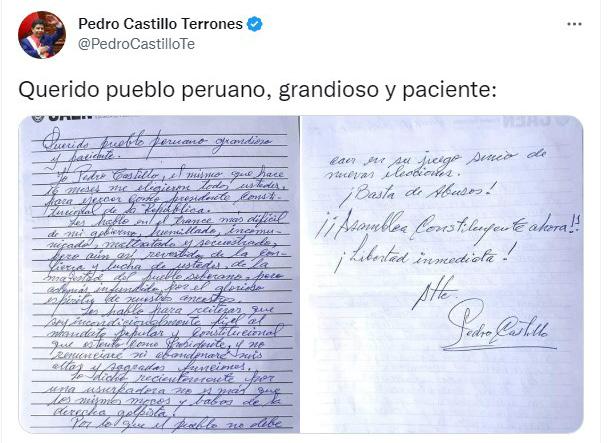 Pedro Castillo Terrones
@PedroCastilloTe
Querido pueblo peruano, grandioso y paciente:
CAEN
CAEN
Querido pueblo peruano grandioso
y paciente.
Yo Pedro Castillo, el mismo que hace
16 meses me eligieron todos ustedes,
para ejercer como presidente Consti-
tucional de la República.
Les hablo en el trance mas difícil
de mi gobierno, humillado, incomu-
nicado, maltratado y secuestrado,
pero aún así revestido de la con-
fianza y lucha de ustedes, de la
majestad del pueblo soberano, pero
además infundido por el glorioso
espíritu de nuestros ancestros.
Les hablo para reiterar que
soy incondicionalmente fiel al
mandato popular y constitucional
que ostento como Presidente, y no
renunciaré ni abandonaré mis
altas y sagradas funciones.
Lo dicho recientemente por
una usurpadora no es más que
los mismos mocos y babas de la
derecha golpista!
Por lo que el pueblo no debe
caer en su juego sucio de
nuevas elecciones.
¡Basta de Abusos!
¡¡Asamblea Constituyente ahora!!
¡Libertad inmediata!
Atte.
Pedro Castillo